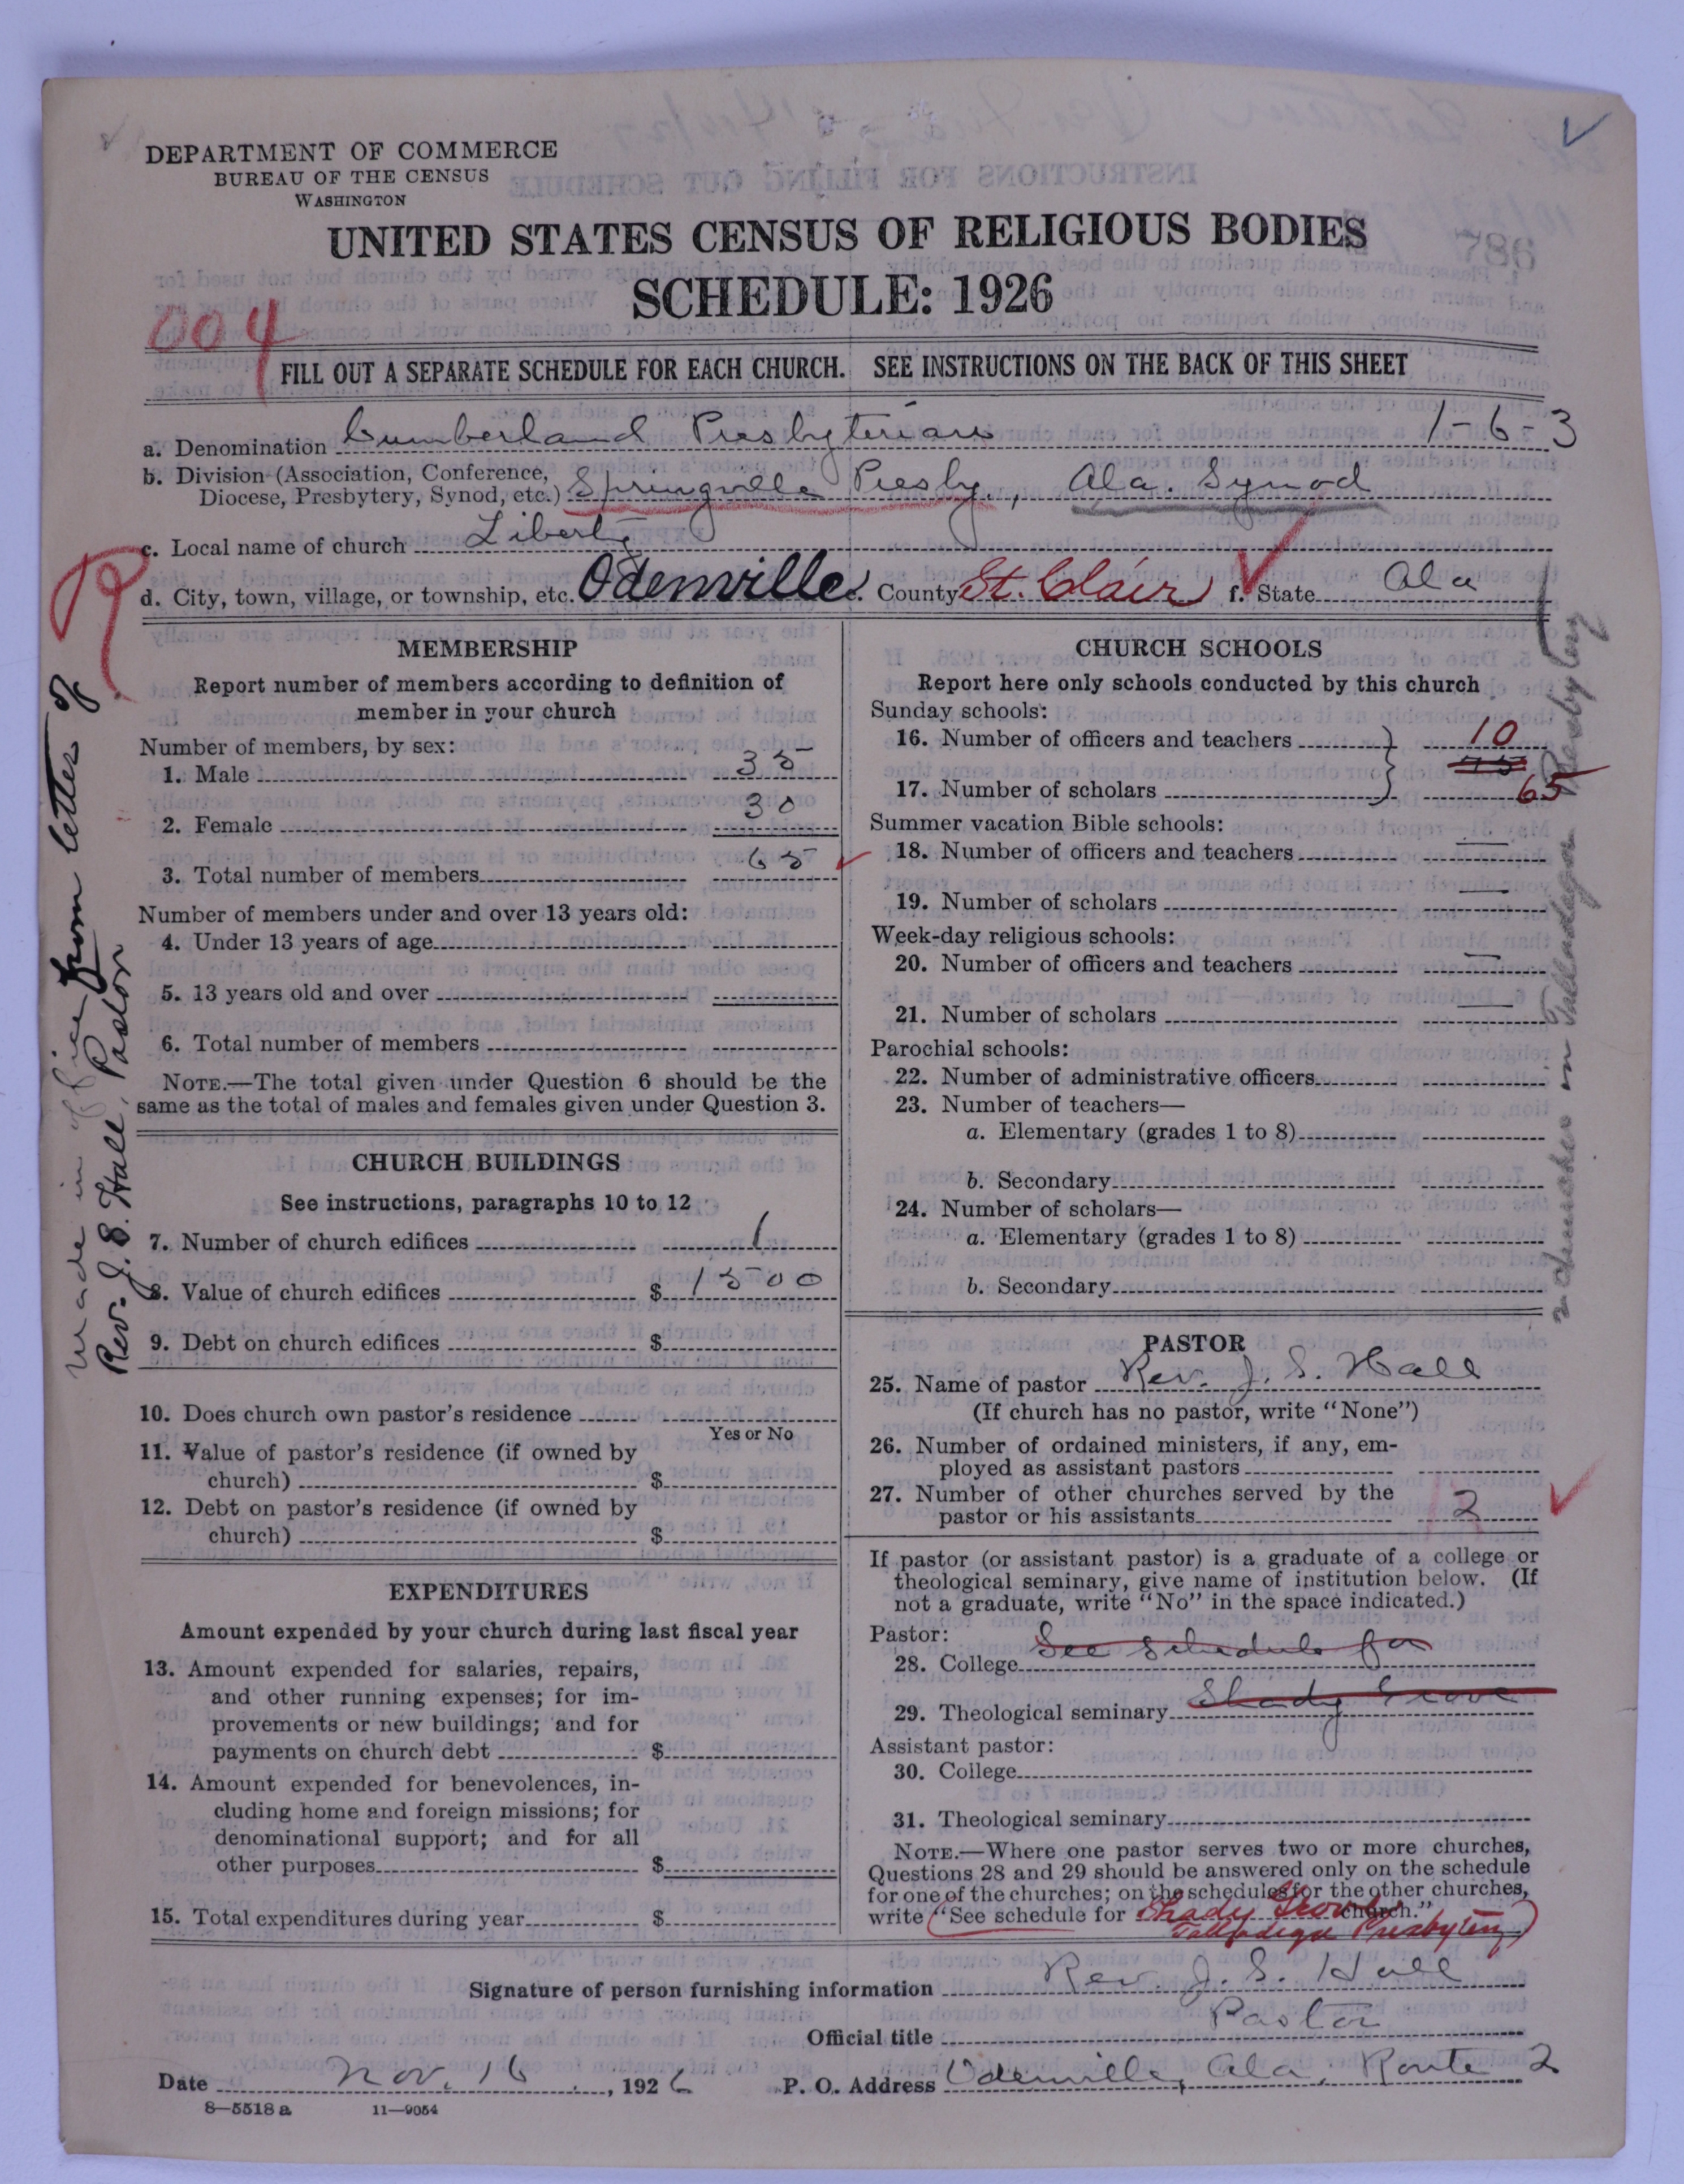 DEPARTMENT OF COMMERCE
BUREAU OF THE CENSUS
WASHINGTON
UNITED STATES CENSUS OF RELIGIOUS BODIES
SCHEDULE: 1926
786
004
FILL OUT A SEPARATE SCHEDULE FOR EACH CHURCH. SEE INSTRUCTIONS ON THE BACK OF THIS SHEET
a. Denomination Cumberland Presbyterian 1-6-3
b. Division (Association, Conference, Diocese, Presbytery, Synod, etc.) Springville Presby., Ala. Synod
c. Local name of church Liberty
d. City, town, village, or township, etc. Odenville e. County St. Clair f. State Ala
MEMBERSHIP
Report number of members according to definition of
member in your church
Number of members, by sex:
1. Male 35
2. Female 30
3. Total number of members 65
Number of members under and over 13 years old:
4. Under 13 years of age
5. 13 years old and over
6. Total number of members
NOTE.—The total given under Question 6 should be the
same as the total of males and females given under Question 3.
CHURCH BUILDINGS
See instructions, paragraphs 10 to 12
7. Number of church edifices 1
8. Value of church edifices $ 1500
9. Debt on church edifices $
10. Does church own pastor's residence
Yes or No
11. Value of pastor's residence (if owned by
church) $
12. Debt on pastor's residence (if owned by
church) $
EXPENDITURES
Amount expended by your church during last fiscal year
13. Amount expended for salaries, repairs,
and other running expenses; for im-
provements or new buildings; and for
payments on church debt $
14. Amount expended for benevolences, in-
cluding home and foreign missions; for
denominational support; and for all
other purposes $
15. Total expenditures during year $
made in office from letter of
Rev. J. S. Hall, Pastor
CHURCH SCHOOLS
Report here only schools conducted by this church
Sunday schools:
16. Number of officers and teachers 10
75
17. Number of scholars 65
Summer vacation Bible schools:
18. Number of officers and teachers —
19. Number of scholars —
Week-day religious schools:
20. Number of officers and teachers —
21. Number of scholars —
Parochial schools:
22. Number of administrative officers
23. Number of teachers—
a. Elementary (grades 1 to 8)
b. Secondary
24. Number of scholars—
a. Elementary (grades 1 to 8)
b. Secondary
2 churches in Talladega Presbytery
PASTOR
25. Name of pastor Rev. J. S. Hall
(If church has no pastor, write "None")
26. Number of ordained ministers, if any, em-
ployed as assistant pastors
27. Number of other churches served by the
pastor or his assistants 2
If pastor (or assistant pastor) is a graduate of a college or
theological seminary, give name of institution below. (If
not a graduate, write "No" in the space indicated.)
Pastor:
28. College See schedule for
29. Theological seminary Shady Grove
Assistant pastor:
30. College
31. Theological seminary
NOTE.—Where one pastor serves two or more churches,
Questions 28 and 29 should be answered only on the schedule
for one of the churches; on the schedules for the other churches,
write "See schedule for Shady Grove church."
Talladega Presbytery
Signature of person furnishing information Rev. J. S. Hall
Official title Pastor
Date Nov. 16, 1926 P. O. Address Odenville, Ala, Route 2
8—5518 a 11—9054